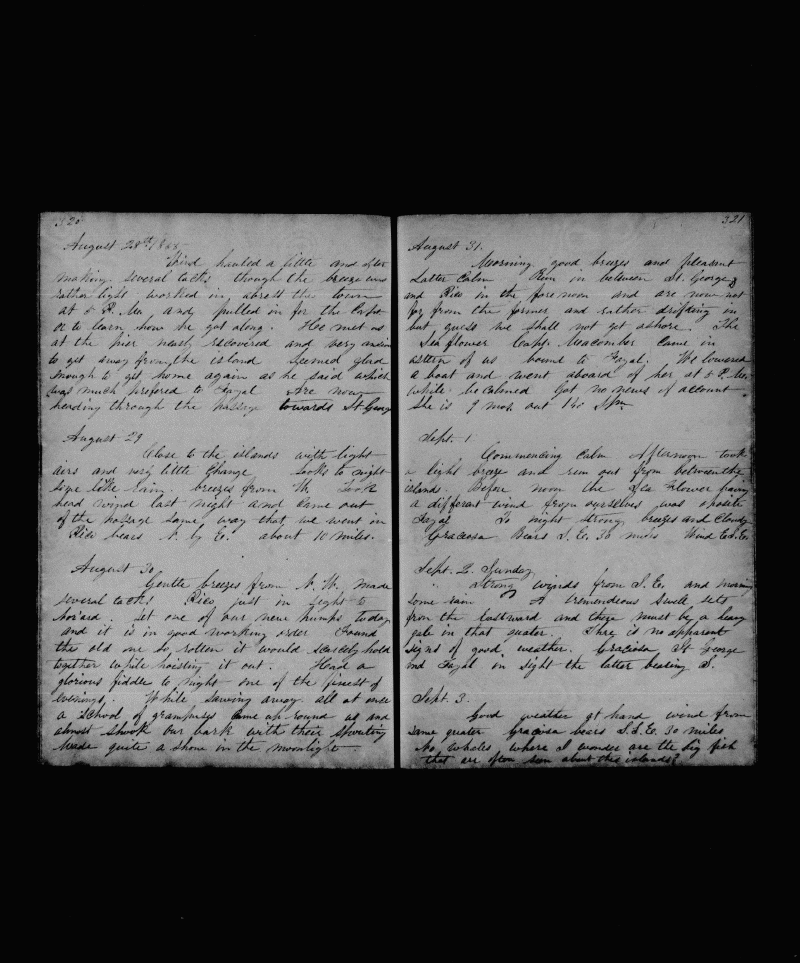 320
August 28th
Wind hauled a little and after
making several tacks though the breeze was
rather light worked in abrest the town
at 5 P. M. and pulled in for the Capt
or to learn how he got along. Hee met us
at the pier newly recovered and very anxious
to get away from the island Seemed glad
enough to get home again as he said which
was much prefered to Fayal Are now
heading through the passage towards St George
August 29
Close to the islands with light
airs and very little change Looks to night
some like rain. breezes from W. Took
head wind last night and came out
of the passage same way that we went in
Pico bears N. by E. about 10 miles.
August 30
Gentle breezes from N. W. made
several tacks Pico just in sight to
. Set one of our new pumps today
and it is in good working order Found
the old one so rotten it would scarcely hold
together while hoisting it out. Had a
glorious fiddle to night one of the finest of
evenings. While sawing away all at once
a school of grampuses came up round us and
almost shook our bark with their spouting
Made quite a show in the moonlight
321
August 31.
Morning good breezes and pleasant
Latter Calm Run in between St. George
and Pico in the forenoon and are now not
far from the former and rather drifting in
but guess we shall not get ashore. The
Sea flower Capt. Macomber came in
astern of us bound to Fayal. We lowered
a boat and went aboard of her at 5 P. M.
while becalmed Got no news of account
She is 9 mos. out 140 Spm.
Sept. 1.
Commencing Calm Afternoon took
a light breeze and run out from between the
islands. Before noon the Sea Flower having
a different wind from ourselves was oposite
Fayal To night strong breezes and Cloudy
Graciosa Bears S. E. 30 miles Wind E.S.E.
Sept. 2. Sunday
Strong winds from S. E. and morning
some rain A tremendeous swell sets
from the Eastward and there must be a heavy
gale in that quater. There is no apparent
signs of good weather. Graciosa St George
and Fayal in sight the latter bearing S.
Sept. 3.
Good weather at hand wind from
same quater Graciosa bears S.S.E. 30 miles
No Whales, where I wonder are the big fish
that are often seen about this islands?